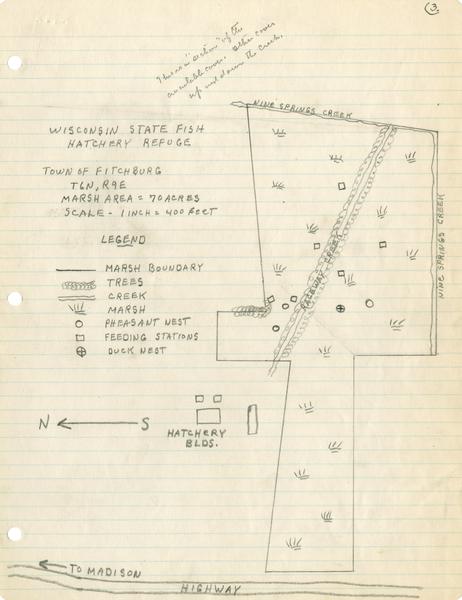 3.
This is a "section" of the
available cover. Other cover
up and down the creek.
NINE SPRINGS CREEK
WISCONSIN STATE FISH
HATCHERY REFUGE
TOWN OF FITCHBURG
T6N, R9E
MARSH AREA = 70 ACRES
SCALE - 1 INCH = 400 FEET
LEGEND
MARSH BOUNDARY
TREES
CREEK
MARSH
PHEASANT NEST
FEEDING STATIONS
DUCK NEST
NINE SPRINGS CREEK
CREEK
N S
HATCHERY
BLDS.
TO MADISON
HIGHWAY